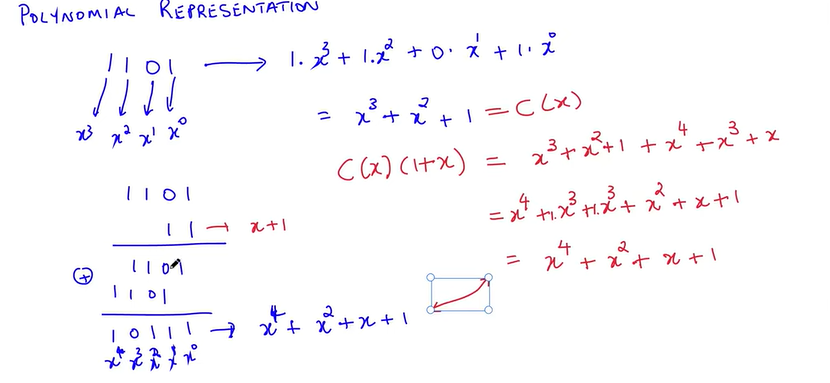 POLYNOMIAL REPRESENTATION
1 1 0 1 → 1·x³ + 1·x² + 0·x¹ + 1·x⁰
x³ x² x¹ x⁰
= x³ + x² + 1 = C(x)
C(x)(1+x) = x³+x²+1 + x⁴+x³+x
= x⁴+1·x³+1·x³+x²+x+1
= x⁴ + x² + x + 1
1 1 0 1
1 1 → x+1
1 1 0 1
⊕ 1 1 0 1
1 0 1 1 1 → x⁴ + x² + x + 1
x⁴ x³ x² x¹ x⁰